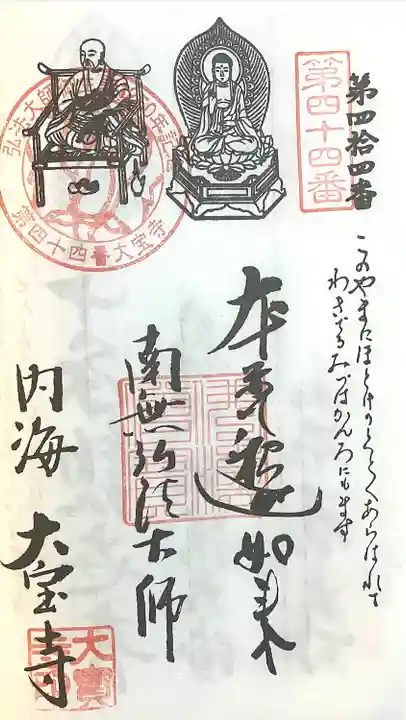 第四拾四番
第四十四番
このやまにほとけのとくへあらはれて
わきでるみづはかんろにもます
本尊釋迦如来
南無弘法大師
内海 大宝寺
弘法大師
第四十四番大宝寺
大寶